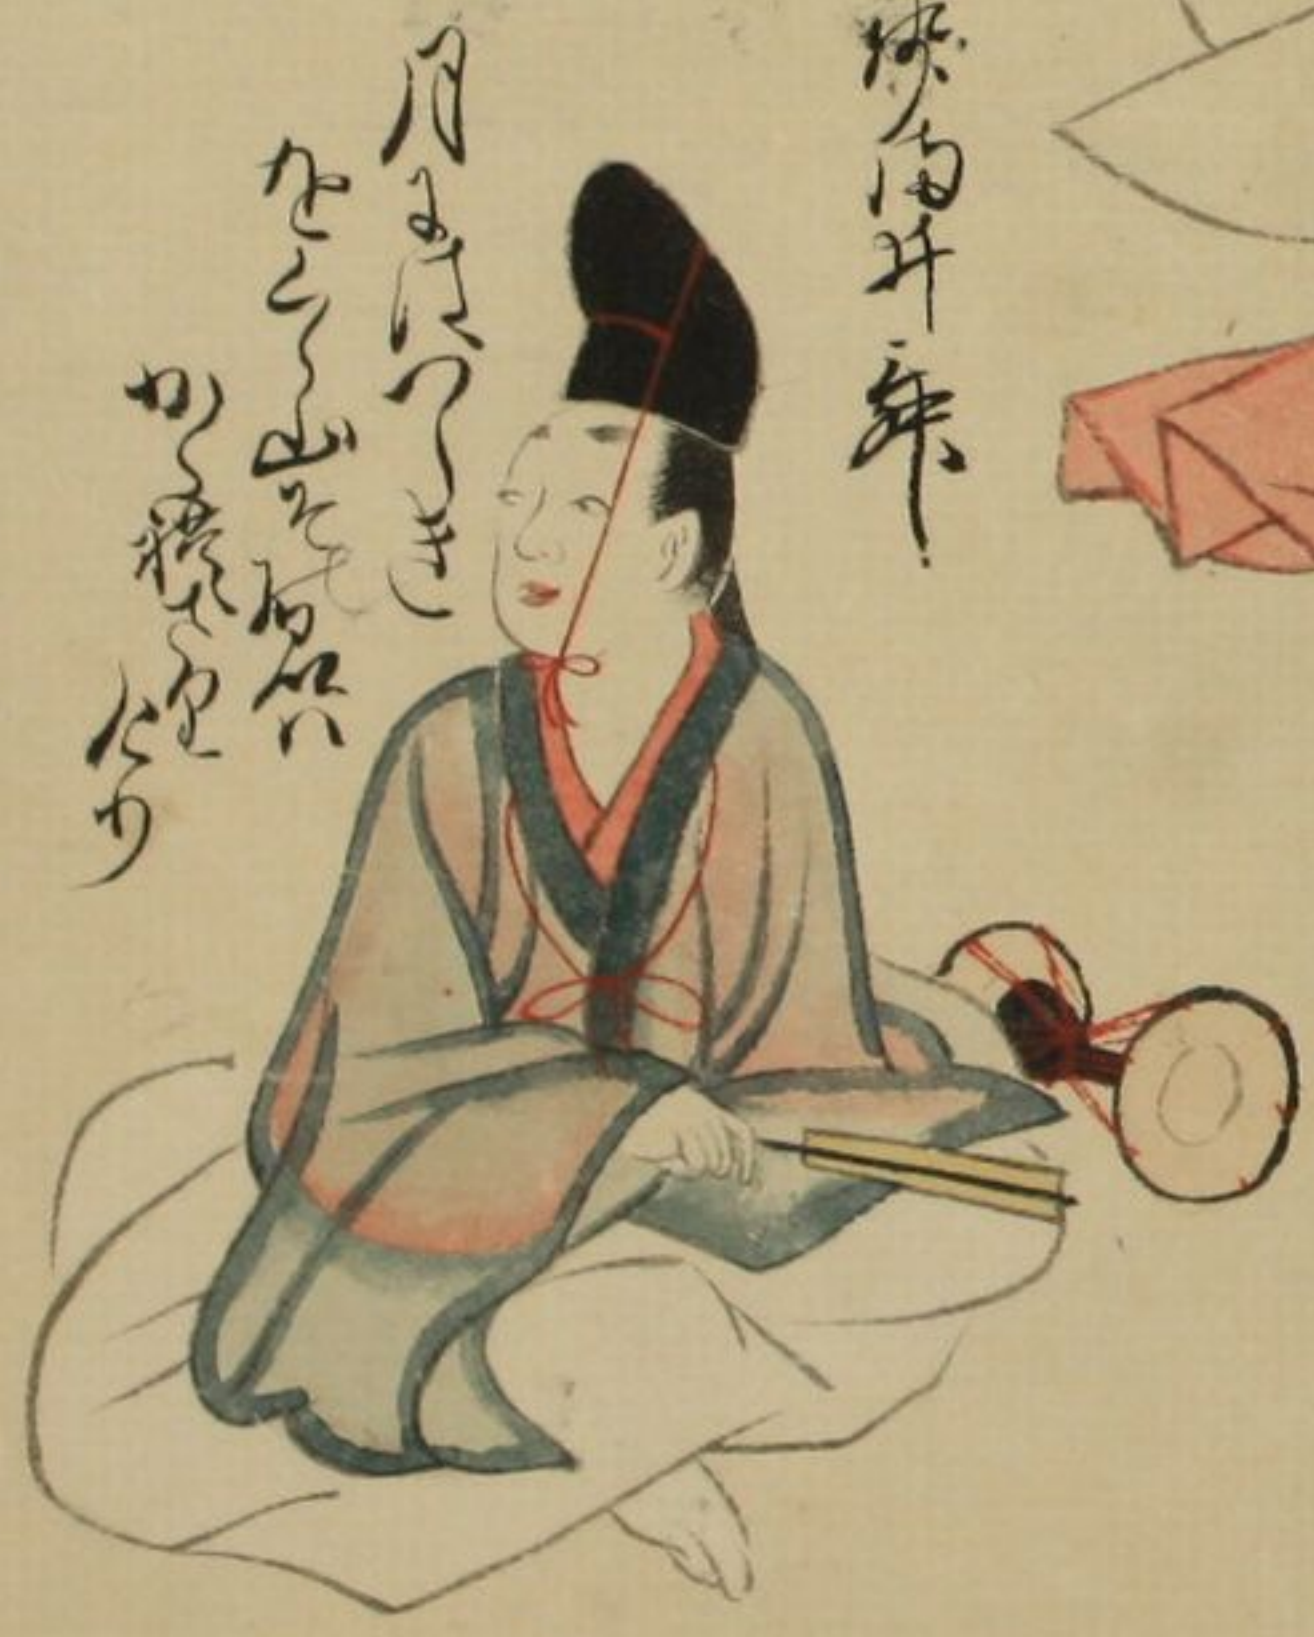 満井舞
月にはつらき
をくら山その名ハ
かくれさり
けり